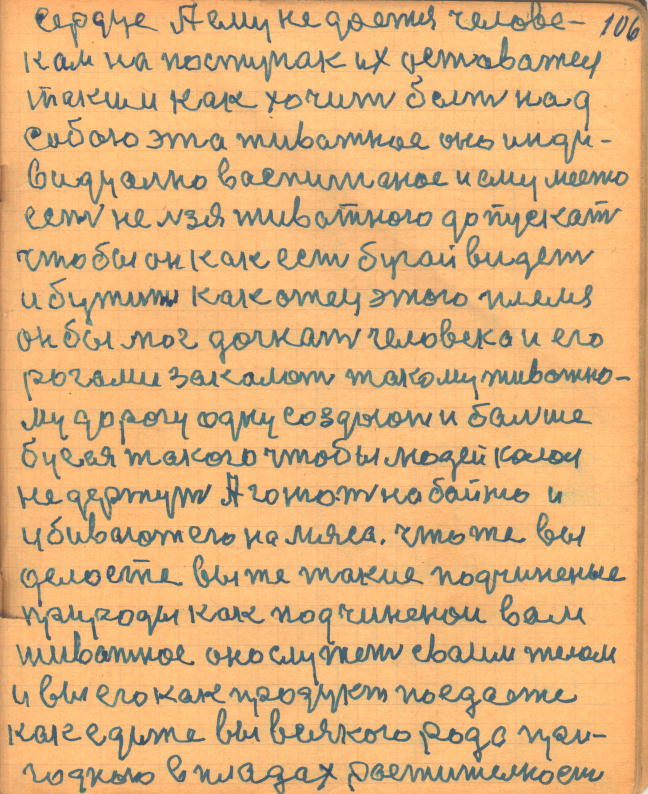 сердце А ему не доется челове- 106
кам на поступак их оставатся
таким как хочит быт над
собою эта животное оно инди-
видуално васпитаное и ему место
ест не лзя животного допускат
чтобы он как ест бугай видет
и бутит как отец этого племя
он бы мог дочкат человека и его
рогами закалот такому животно-
му дорогу одну создают и балше
бугая такого чтобы людей колол
не держут А гонют на байню и
убивают его на мяса. что же вы
делоете вы же такие подчиненые
природы как подчиненои вам
животное оно служет сваим телом
и вы его как продукт поедаете
как едите вы всякого рода при-
годного в пладах растителности